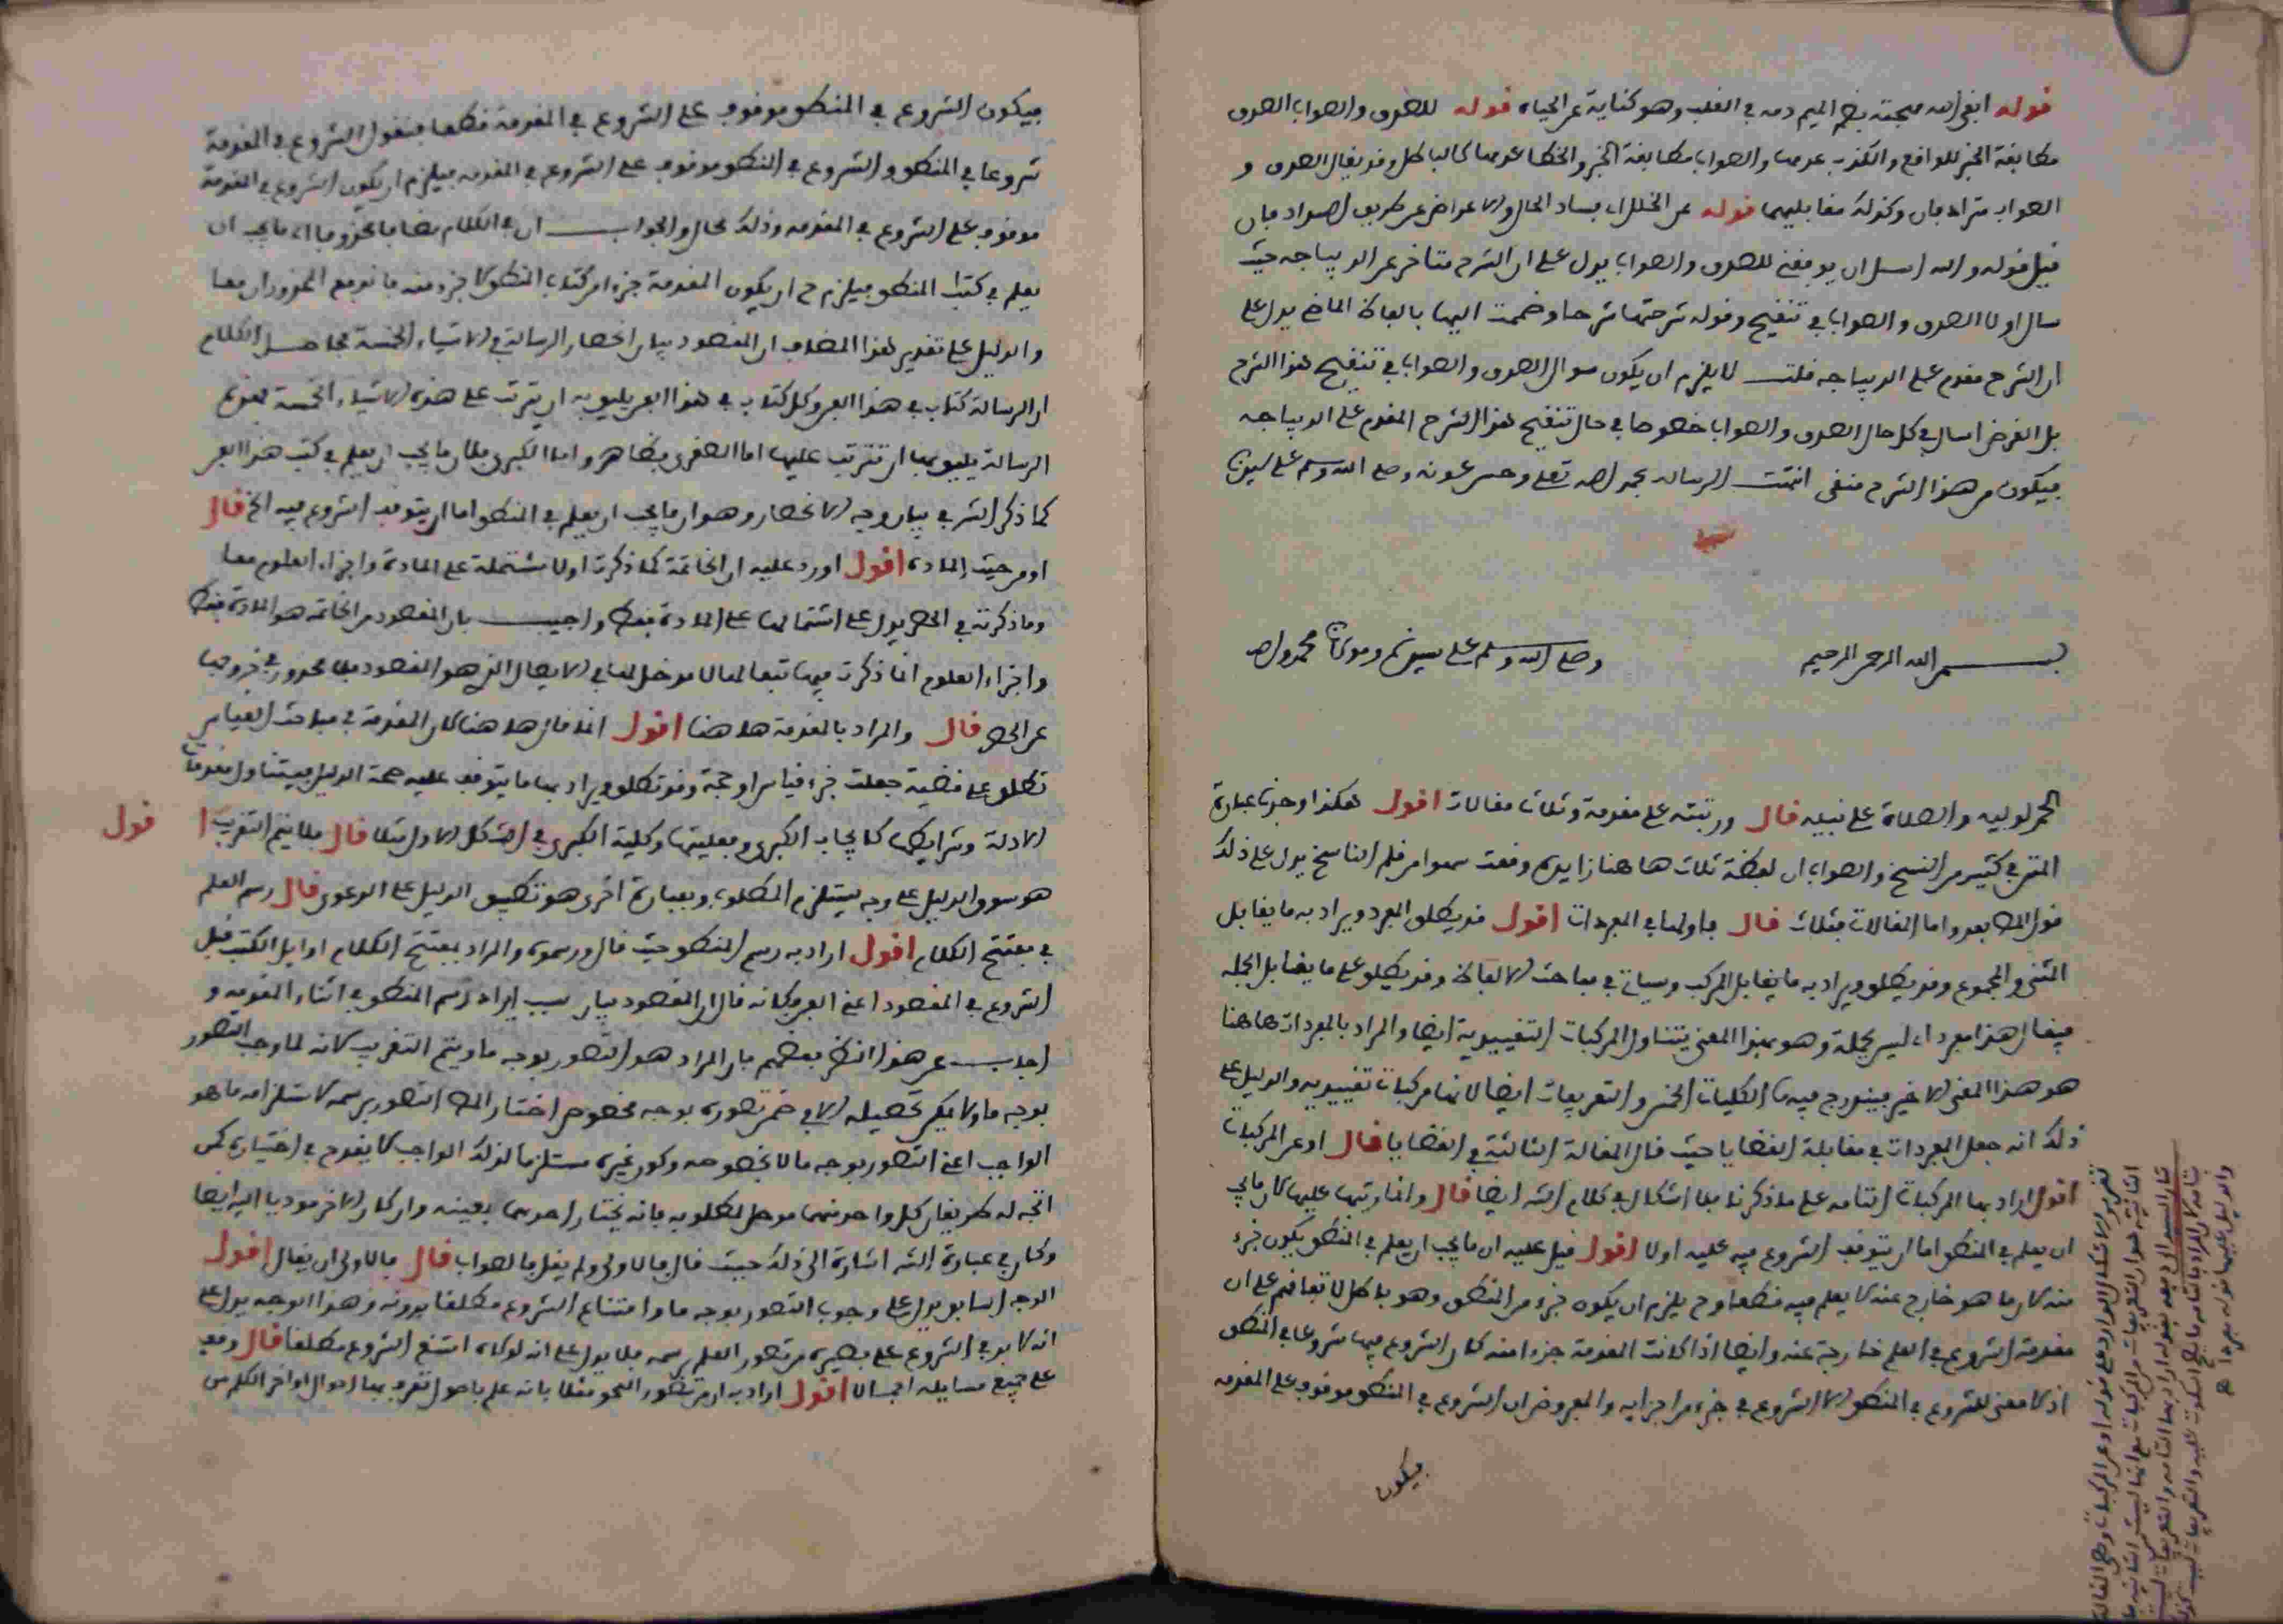 قوله ابقى الله مهجته بضم الميم دمه في القلب وهو كناية عن الحياة قوله للصدق والصواب الصدق
مطابقة الخبر للواقع والكذب عدمها والصواب مطابقة الخبر والخطا عدمها كالباطل وقد يقال الصدق و
الصواب مترادفان وكذلك مقابليهما قوله عن الخلل اى فساد الحال والاعراض عن طريق السداد فان
قيل قوله والله اسل ان يوفقني للصدق والصواب يدل على ان الشرح متاخر عن الديباجه حيث
سال اولا الصدق والصواب في تنقيح وقوله شرحتها شرحا وضممت اليها بالفاظ الماضى يدل على
ان الشرح مقدم على الديباجه قلت لا يلزم ان يكون سوال الصدق والصواب في تنقيح هذا الشرح
بل الغرض اسال في كل حال الصدق والصواب خصوصا في حال تنقيح هذا الشرح المقدم على الديباجه
فيكون من هذا الشرح منقى انتهت الرسالة بحمد الله تعلى وحسن عونه وصلى الله وسلم على سيدنا
بسم الله الرحمن الرحيم وصلى الله وسلم على سيدنا ومولانا محمد واله
الحمد لوليه والصلاة على نبيه قال ورتبته على مقدمة وثلاث مقالات اقول هكذا وجدت عبارة
المتن في كثير من النسخ والصواب ان لفظة ثلاث هاهنا زايدة وقعت سهوا من قلم الناسخ يدل على ذلك
قول المصـ بعد واما المقالات فثلاث قال فاولها في المفردات اقول قد يطلق المفرد ويراد به ما يقابل
المثنى والمجموع وقد يطلق ويراد به ما يقابل المركب وسياتى في مباحث الالفاظ وقد يطلق على ما يقابل الجملة
فيقال هذا مفرد اى ليس بجملة وهو بهذا المعنى يتناول المركبات التقييدية ايضا والمراد بالمفردات هاهنا
هو هذا المعنى الاخير فيندرج فيها الكليات الخمس والتعريفات ايضا لانها مركبات تقييدية والدليل على
ذلك انه جعل المفردات في مقابلة القضايا حيث قال المقالة الثانية في القضايا قال او عن المركبات
اقول اراد بها المركبات التامه على ما ذكرنا فلا اشكال في كلام الشـ ايضا قال وانما رتبها عليها لان ما يجب
ان يعلم في المنطق اما ان يتوقف الشروع فيه عليه اولا اقول قيل عليه ان ما يجب ان يعلم في المنطق يكون جزء
منه لان ما هو خارج عنه لا يعلم فيه قطعا وح يلزم ان يكون جزء من المنطق وهو باطل لاتفاقهم على ان
مقدمة الشروع في العلم خارجة عنه وايضا اذا كانت المقدمة جزءا منه كان الشروع فيها شروعا في المنطق
اذ لا معنى للشروع في المنطق الا الشروع في جزء من اجزايه والمفروض ان الشروع في المنطق موقوف على المقدمه
فيكون
فيكون الشروع في المنطق موقوف على الشروع في المقدمة قطعا فنقول الشروع في المقدمة
شروعا في المنطق والشروع في المنطق موقوف على الشروع في المقدمه فيلزم ان يكون الشروع في المقدمة
موقوف على الشروع في المقدمه وذلك محال والجواب ان في الكلام مضافا محذوفا اى ما يجب ان
يعلم في كتب المنطق فيلزم ح ان يكون المقدمة جزءا من كتاب المنطق لا جزء منه فاندفع المحذوران معا
والدليل على تقدير هذا المضاف ان المقصود بيان انحصار الرسالة في الاشياء الخمسة فحاصل الكلام
ان الرسالة كتاب في هذا الفن وكل كتاب في هذا الفن يليق به ان يترتب على هذه الاشياء الخمسة فهذه
الرسالة يليق بها ان تترتب عليها اما الصغرى فظاهر واما الكبرى فلان ما يجب ان يعلم في كتب هذا الفن
كما ذكر الشـ في بيان وجه الانحصار وهو ان ما يجب ان يعلم في المنطق اما ان يتوقف الشروع فيه الخ قال
او من حيث المادة اقول اورد عليه ان الخاتمة كما ذكرت اولا مشتملة على المادة واجزاء العلوم معا
وما ذكرته في الحصر يدل على اشتمالها على المادة فقط واجيب بان المقصود من الخاتمه هو المادة فقط
واجزاء العلوم انما ذكرت فيها تبعا لها لا مدخل لها في الايصال الذي هو المقصود فلا محذور في خروجها
عن الحصر قال والمراد بالمقدمة هاهنا اقول انما قال هاهنا لان المقدمة في مباحث القياس
تطلق على قضية جعلت جزء قياس او حجة وقد تطلق ويراد بها ما يتوقف عليه صحة الدليل فيتناول مقدمات
الادلة وشرايطها كايجاب الكبرى وفعليتها وكلية الكبرى في الشكل الاول مثلا قال فلا يتم التقريب اقول
هو سوق الدليل على وجه يستلزم المطلوب وبعبارة اخرى هو تطبيق الدليل على الدعوى قال رسم العلم
في مفتتح الكلام اقول اراد به رسم المنطق حيث قال ورسموه والمراد بمفتتح الكلام اوايل الكتب قبل
الشروع في المقصود اعني الفن وكانه قال ان المقصود بيان سبب ايراد رسم المنطق في اثناء المقدمه و
اجاب عن هذا النظر بعضهم بان المراد هو التصور بوجه ما ويتم التقريب لانه لما وجب التصور
بوجه ما ولا يمكن تحصيله الا في ضمن تصوره بوجه مخصوص اختار المصـ التصور برسمه لاستلزامه ما هو
الواجب اعني التصور بوجه ما لا بخصوصه وكون غيره مستلزما لذلك الواجب لا يقدح في اختياره كمن
اتجه له طريقان كل واحد منهما موصل لمطلوبه فانه يختار احدهما بعينه وان كان الاخر موديا اليه ايضا
وكان في عبارة الشـ اشارة الى ذلك حيث قال فالاولى ولم يقل فالصواب قال فالاولى ان يقال اقول
الوجه السابق يدل على وجوب التصور بوجه ما وامتناع الشروع مطلقا بدونه وهذا الوجه يدل على
انه لا بد في الشروع على بصيرة من تصور العلم برسمه فلا يدل على انه لولاه امتنع الشروع مطلقا قال وقف
على جميع مسايله اجمالا اقول اراد به ان من تصور النحو مثلا بانه علم باصول تعرف بها احوال اواخر الكلم من